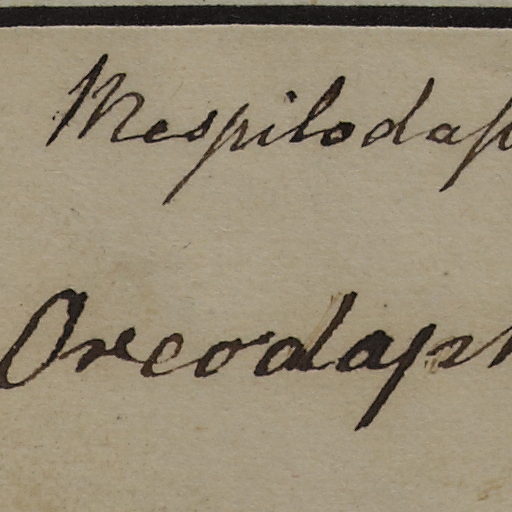 Mespilodap
Oreodaph